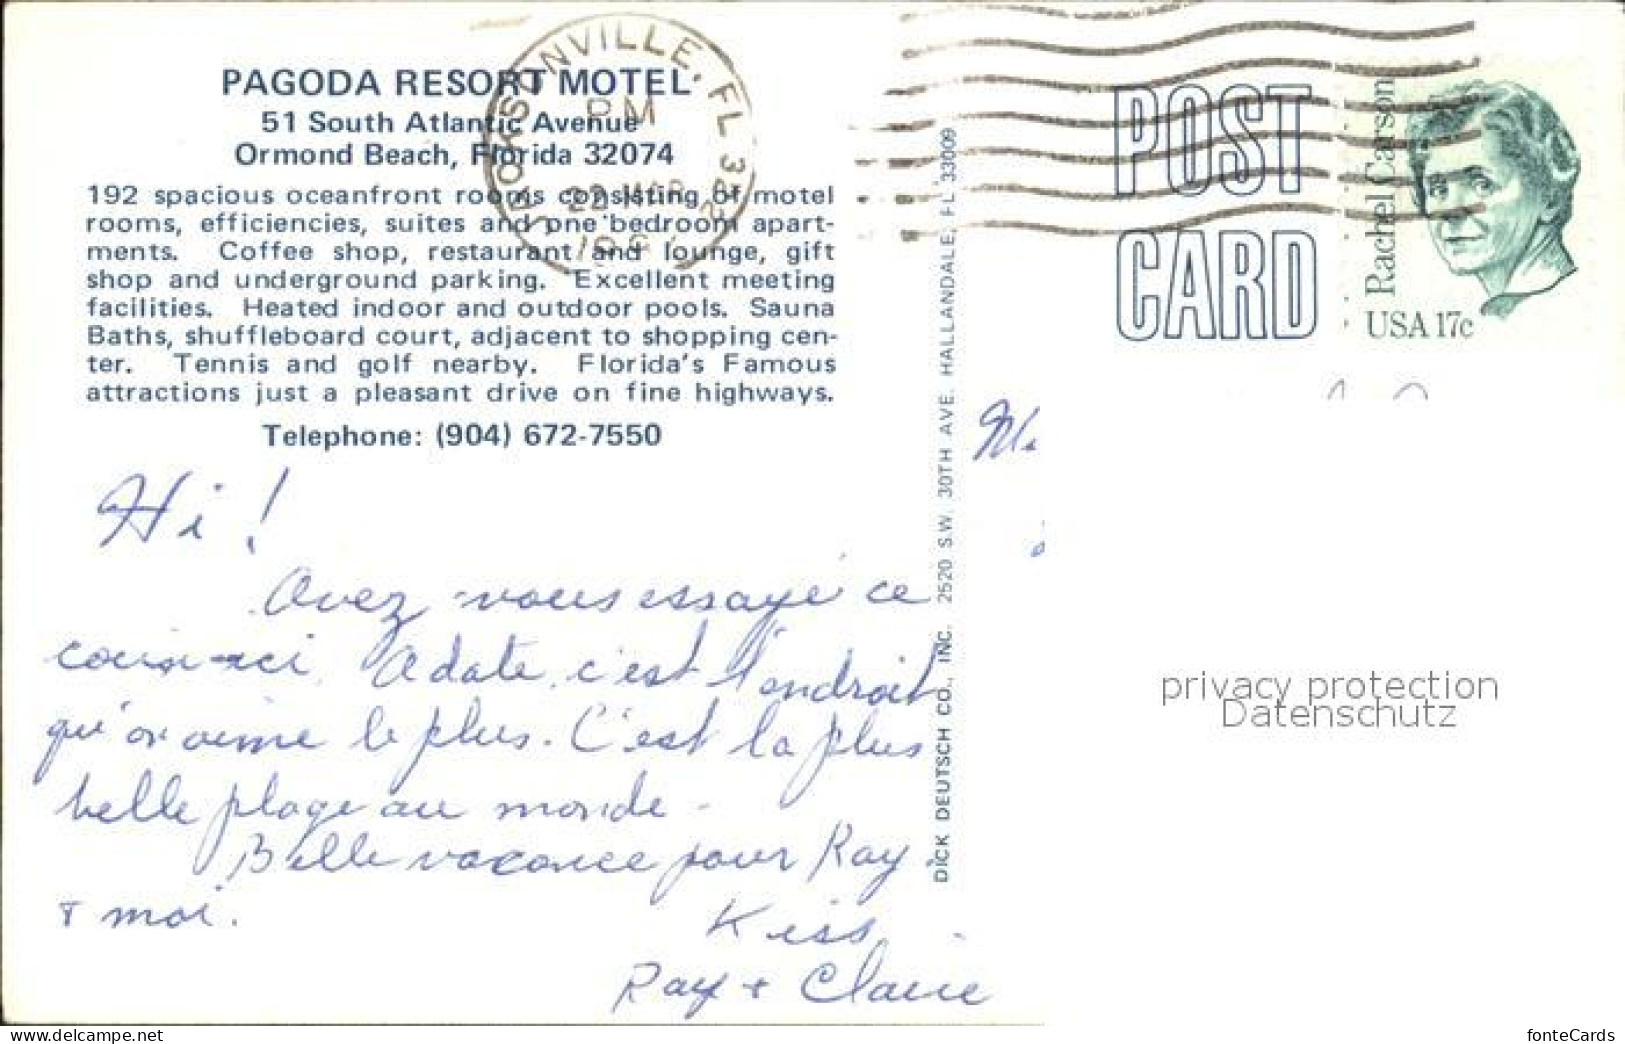 PAGODA RESORT MOTEL
51 South Atlantic Avenue
Ormond Beach, Florida 32074
192 spacious oceanfront rooms consisting of motel
rooms, efficiencies, suites and one bedroom apart-
ments. Coffee shop, restaurant and lounge, gift
shop and underground parking. Excellent meeting
facilities. Heated indoor and outdoor pools. Sauna
Baths, shuffleboard court, adjacent to shopping cen-
ter. Tennis and golf nearby. Florida's Famous
attractions just a pleasant drive on fine highways.
Telephone: (904) 672-7550
Hi!
Avez vous essayé ce
coin-ci. A date, c'est l'endroit
qu'on aime le plus. C'est la plus
belle plage au monde -
Belle vacance pour Ray
+ moi.
Kiss
Ray + Claire
JACKSONVILLE, FL
PM
MAR
DICK DEUTSCH CO., INC. 2520 S.W. 30TH AVE. HALLANDALE, FL 33009
POST
CARD
Rachel Carson
USA 17c
privacy protection
Datenschutz
fonteCards